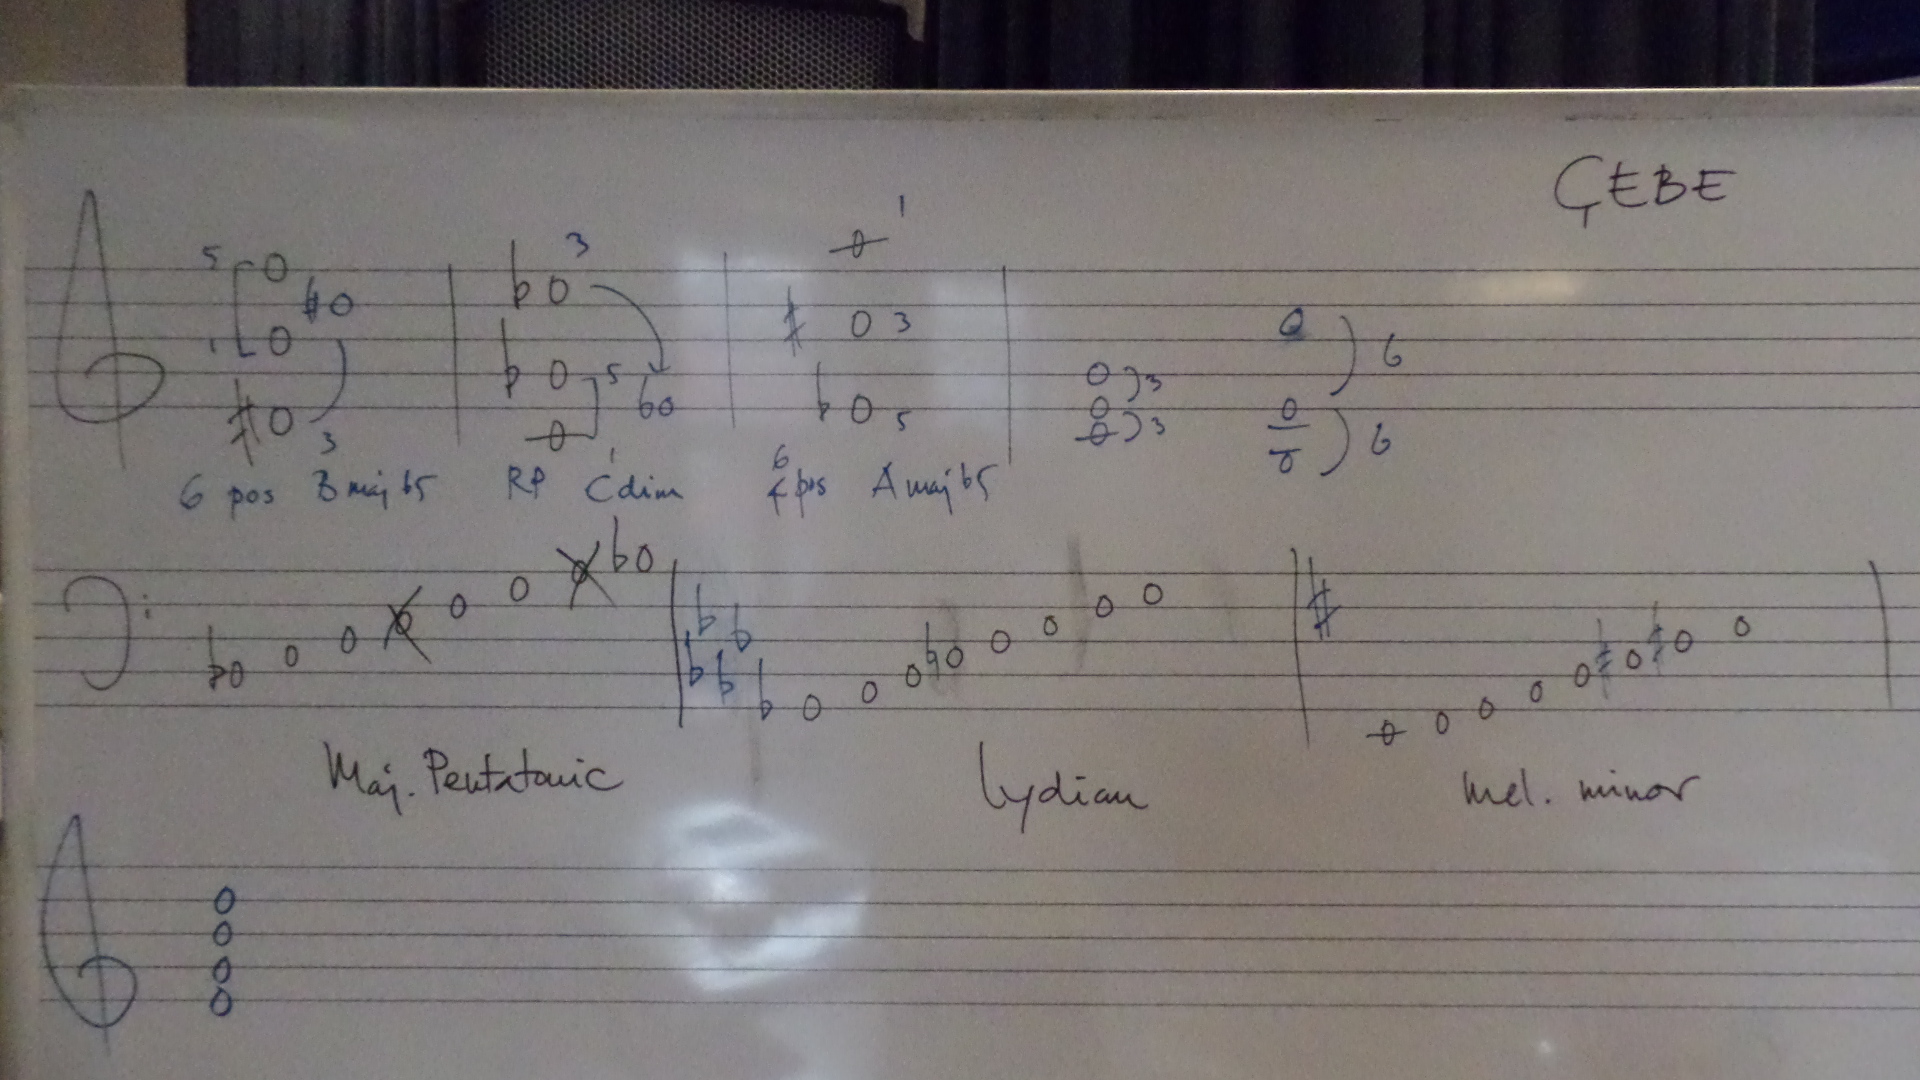 ÇEBE
5 1 3 3 5 1 1 3 5 3 3 6 6
6 pos B maj b5 RP C dim 6 pos A maj b5
Maj. Pentatonic Lydian Mel. minor